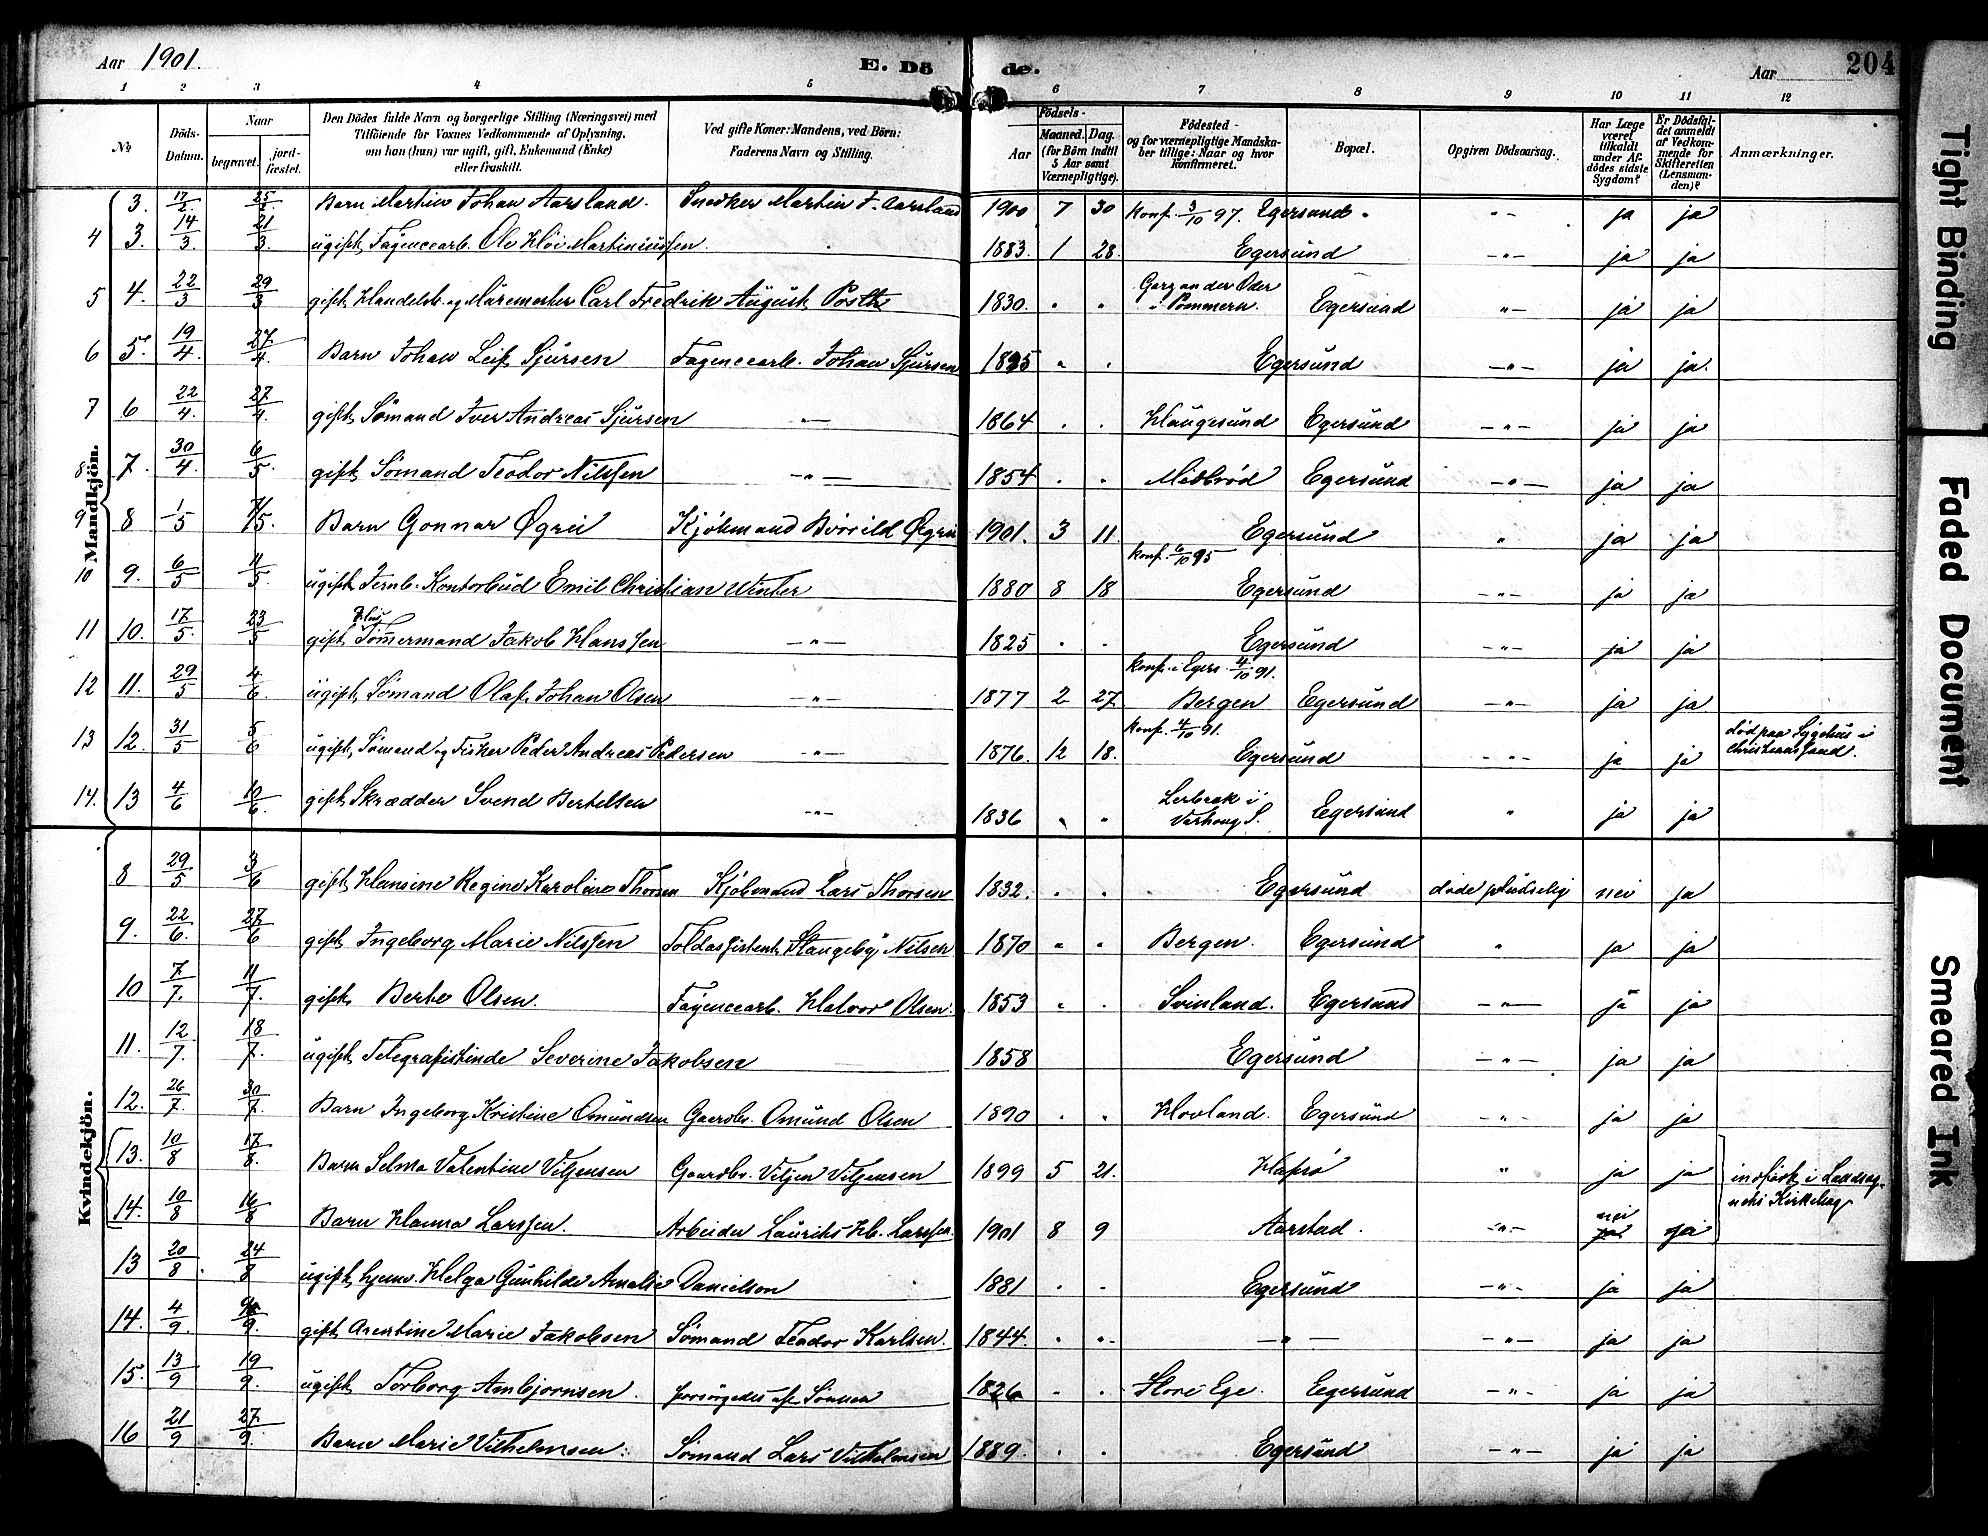 Aar 1901. E. Dö de. Aar 204
1 2 3 4 5 6 7 8 9 10 11 12
No
Döds-Datum.
Naar
begravet. jordfæstet.
Den Dödes fulde Navn og borgerlige Stilling (Næringsvei) med
Tilföiende for Voxnes Vedkommende af Oplysning,
om han (hun) var ugift, gift, Enkemand (Enke)
eller fraskilt.
Ved gifte Koner: Mandens, ved Börn:
Faderens Navn og Stilling.
Födsels-
Aar
Maaned. Dag.
(for Börn indtil
5 Aar samt
Værnepligtige).
Födested
og for værnepligtige Mandskaber tillige: Naar og hvor
konfirmeret.
Bopæl.
Opgiven Dödsaarsag.
Har Læge
været
tilkaldt
under Afdödes sidste
Sygdom?
Er Dödsfaldet anmeldt
af Vedkommende for
Skifteretten
(Lensmanden)?
Anmærkninger.
Mandkjön.
3. 17/2 25/2 Barn Martin Johan Aarsland. Snedker Martin J. Aarsland 1900 7 30 Egersund " ja ja
konf. 3/10 97.
4 3. 14/3 21/3 ugift Fayencearb. Ole Kloi Martiniussen 1883. 1 28. Egersund -"- ja ja
5 4. 22/3 29/3 gift Handelsb. og Möremester Carl Fredrik August Posth 1830. " " Garz an der Oder i Pommern. Egersund -"- ja ja
6 5. 19/4. 27/4. Barn Johan Leif Sjursen Fayencearb. Johan Sjursen 1895 " " Egersund -"- ja ja.
7 6 22/4. 27/4. gift Sömand Iver Andreas Sjursen -"- 1864 . . Haugesund Egersund -"- ja ja
8 7. 30/4. 6/5. gift Sömand Teodor Nilssen -"- 1854 . " Midbröd Egersund -"- ja ja
9 8 1/5 7/5. Barn Gonnar Øgrei Kjöbmand Bóorild Øgrei 1901. 3 11 Egersund " ja ja
konf. 6/10 95
10 9. 6/5 11/5. ugift Jernb. Kontorbud Emil Christian Winter 1880 8 18 Egersund -"- ja ja
11 10. 17/5. 23/5 gift Tömmermand Jakob Hanssen -"- 1825 . . Egersund -"- ja ja
konf. i Egers. 4/10 91.
12 11. 29/5 4/6 ugift Sömand Olaf Johan Olsen -"- 1877 2 27 Bergen Egersund -"- ja ja
konf. 4/10 91.
13 12. 31/5 5/6 ugift Sömand og Fisker Peder Andreas Pedersen -"- 1876. 12 18. Egersund -"- ja ja död paa Sygehus i Christianssand.
14. 13 4/6 10/6. gift Skrædder Svend Bertelsen -"- 1836 " " Lerbræk i Varhoug S. Egersund " ja ja
Kvindekjön.
8 29/5 3/6 gift Hansine Regine Karoline Thorsen Kjöbmand Lars Thorsen 1832. . . Egersund döde pludselig nei ja
9. 22/6. 27/6 gift Ingeborg Marie Nilssen Toldassistent Stangeby Nilsen 1870 " " Bergen. Egersund " ja ja
10 7/7. 11/7. gift Berte Olsen. Fayencearb. Halvor Olsen. 1853 " . Svinland. Egersund -"- ja ja
11. 12/7. 18/7. ugift Telegrafistinde Severine Jakobsen 1858 Egersund -"- ja ja
12. 26/7. 30/7. Barn Ingeborg Kristine Omundsen Gaardbr. Omund Olsen 1890 . . Hovland. Egersund -"- ja ja
13. 10/8 17/8. Barn Selma Valentine Viljensen Gaardbr. Viljen Viljensen 1899 5 21. Hafsö " ja ja indfört i Landsognets Kirkebog
14. 10/8 16/8 Barn Hanna Larssen. Arbeider Laurits Hb. Larssen. 1901 8 9 Aarstad. -"- nei ja ja
13 20/8. 24/8 ugift hjemv. Helga Gunhilde Amalie Danielson 1881 . . Egersund -"- ja ja
14. 4/9. 9/9. gift Arentine Marie Jakobsen Sömand Teodor Karlsen. 1844. " " -"- -"- ja ja
15. 13/9 19/9. ugift Torborg Ambjornsen. forsörgedes af Sönnen 1826 . . Store Ege. Egersund -"- ja ja
16 21/9 27/9. Barn Marie Vilhelmsen. Sömand Lars Vilhelmsen 1889. . . Egersund -"- ja ja
Tight Binding
Faded Document
Smeared Ink